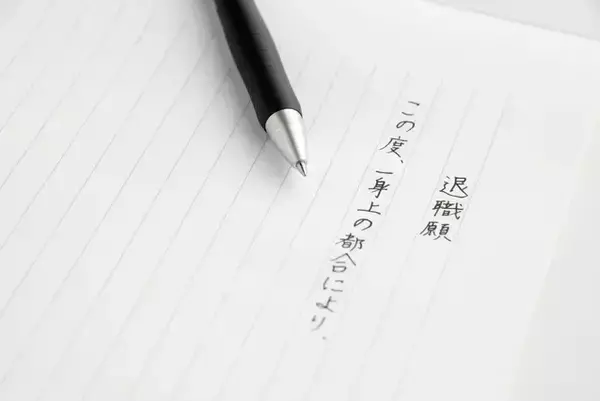 退職願
この度、一身上の都合により、